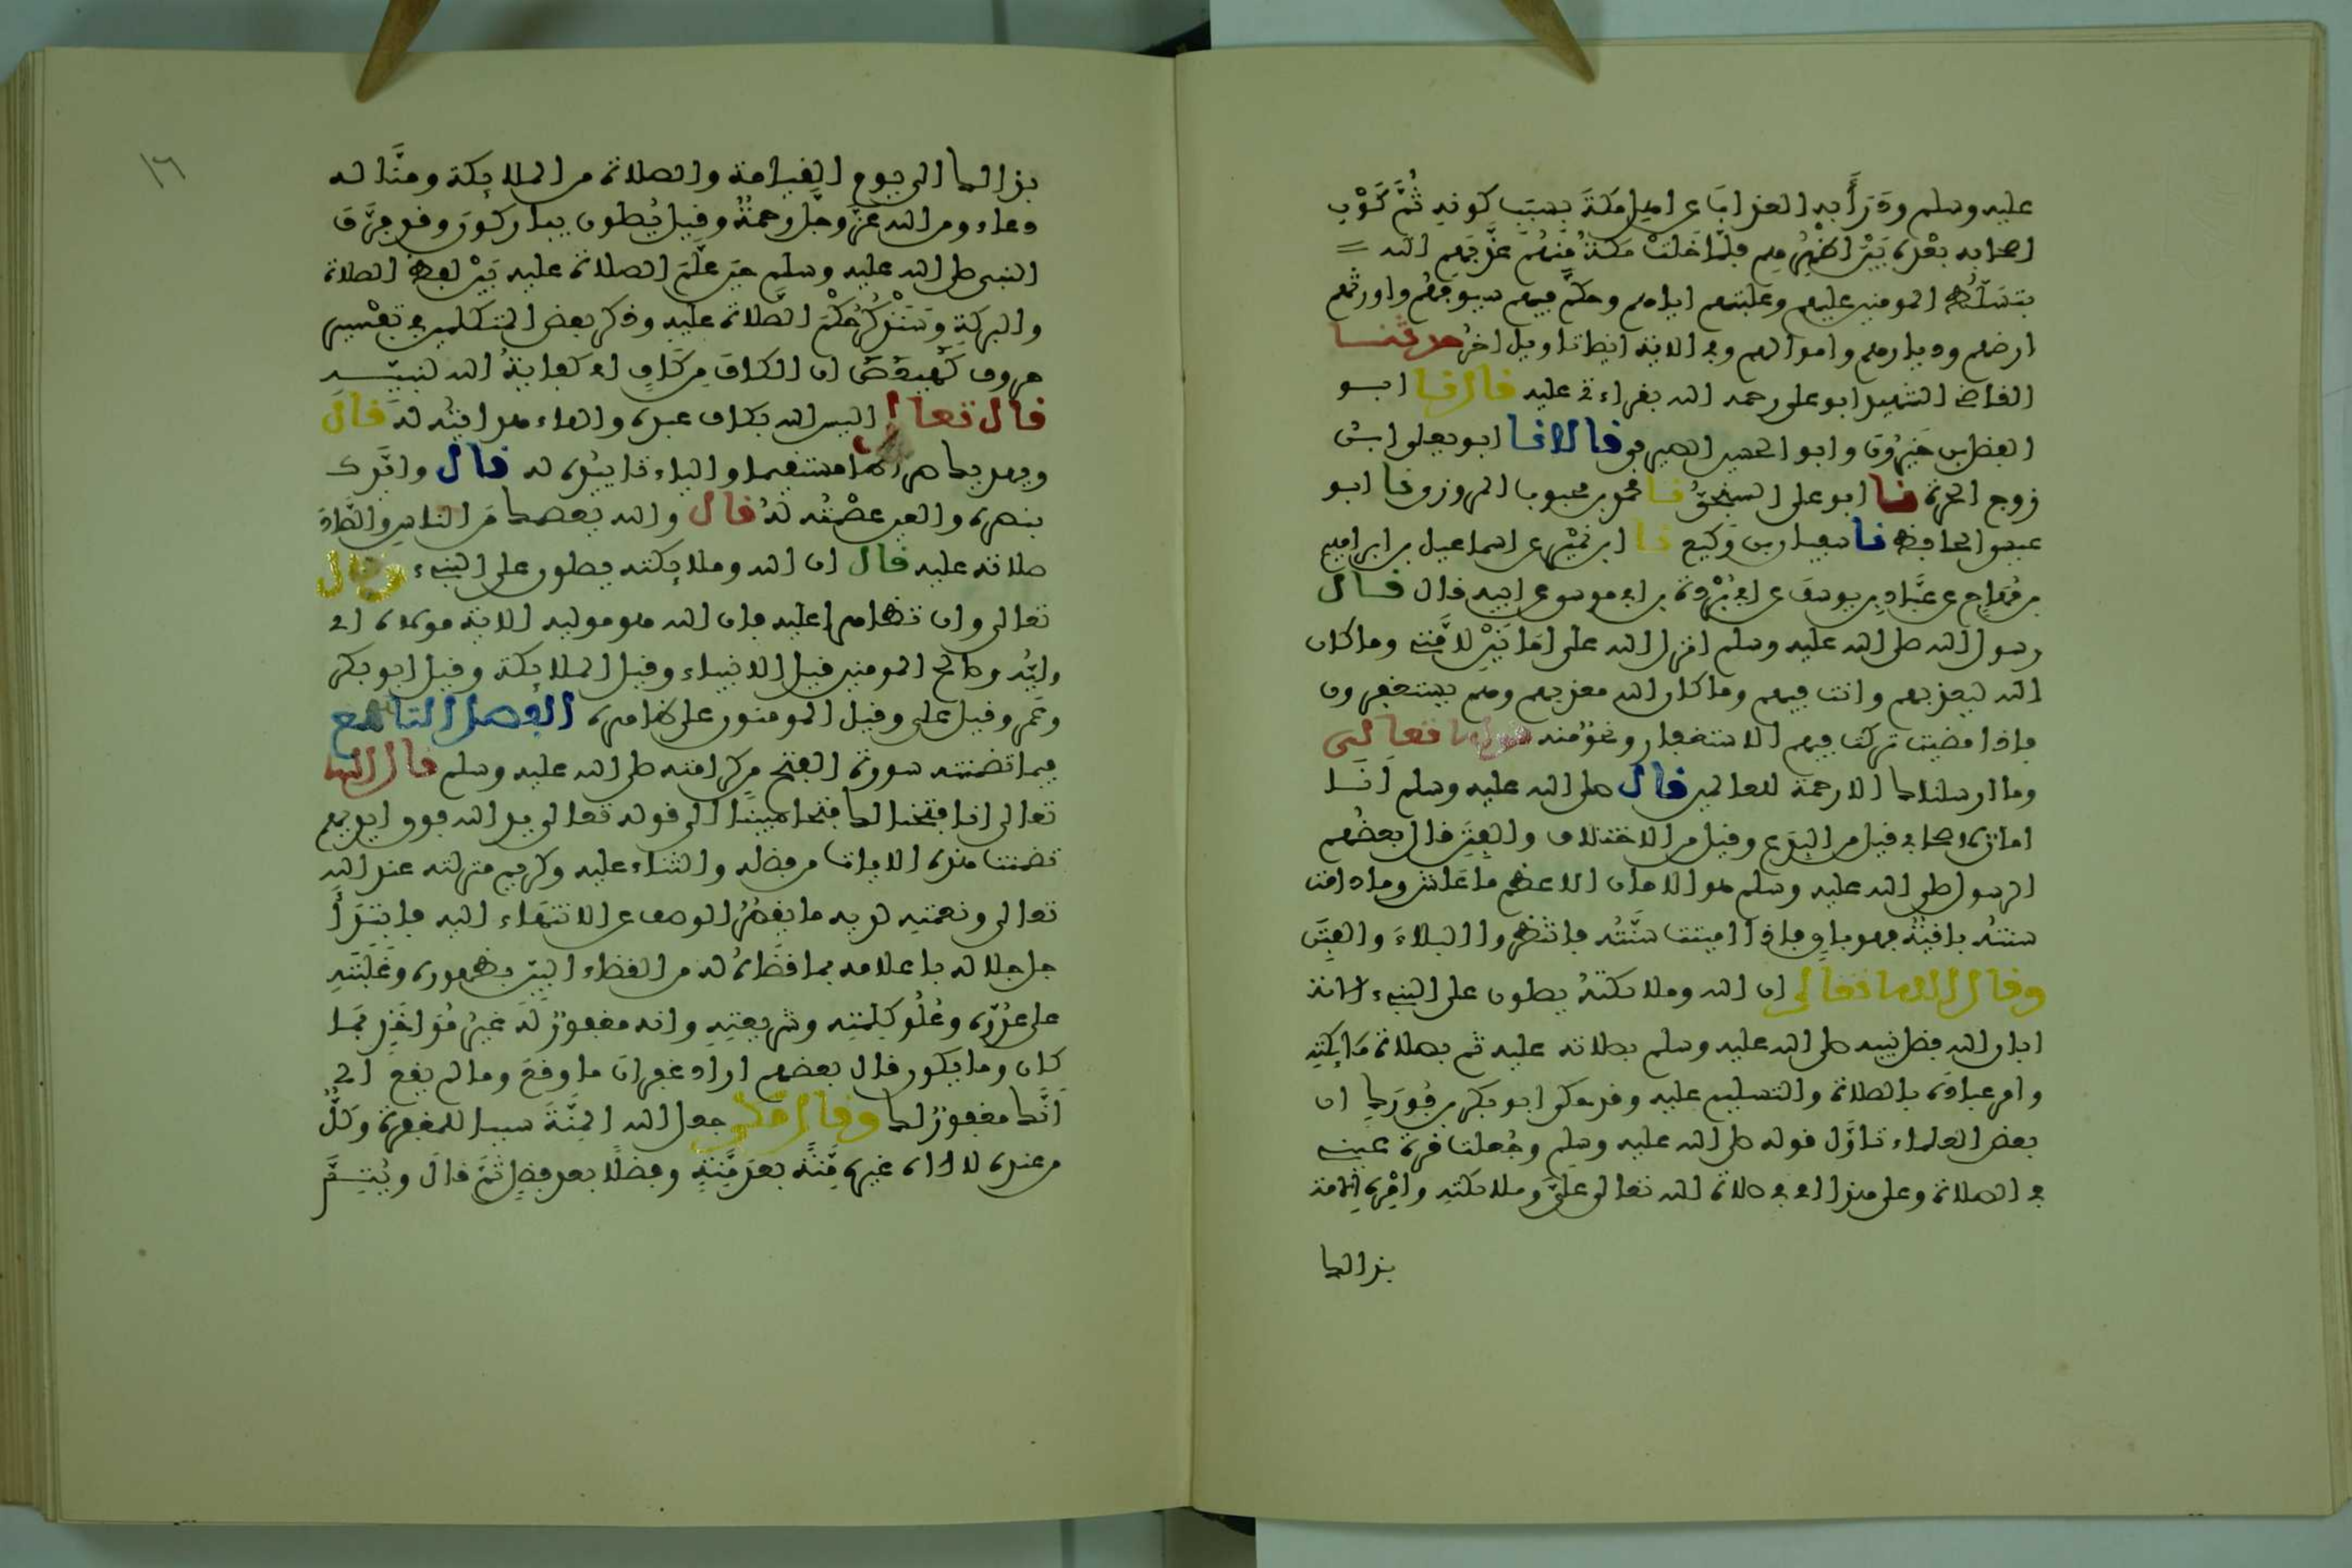 عليه وسلم ودرأ به العذاب عن اهل مكة بسبب كونه ثم كون
اصحابه بعده بين اظهرهم فلما خلت مكة منهم عذبهم الله
بتسليط المومنين عليهم وغلبتهم اياهم وحكم فيهم سيوفهم واورثهم
ارضهم وديارهم واموالهم وفي الاية ايضا تاويل اخر حدثنا
القاضي الشهيد ابو علي رحمه الله بقراءتي عليه قال نا ابو
الفضل بن خيرون وابو الحسين الصيرفي قالا نا ابو يعلى ابن
زوج الحرة نا ابو علي السنجي نا محمد بن محبوب المروزي نا ابو
عيسى الحافظ نا سفيان بن وكيع نا ابن نمير عن اسماعيل بن ابراهيم
بن مهاجر عن عباد بن يوسف عن ابي بردة بن ابي موسى عن ابيه قال قال
رسول الله صلى الله عليه وسلم انزل الله علي امانين لامتي وما كان
الله ليعذبهم وانت فيهم وما كان الله معذبهم وهم يستغفرون
فاذا مضيت تركت فيهم الاستغفار ونحو منه قوله تعالى
وما ارسلناك الا رحمة للعالمين قال صلى الله عليه وسلم انا
امان لاصحابي قيل من البدع وقيل من الاختلاف والفتن قال بعضهم
الرسول صلى الله عليه وسلم هو الامان الاعظم ما عاش وما دامت
سنته باقية فهو باق فاذا اميتت سنته فانتظروا البلاء والفتن
وقال الله تعالى ان الله وملائكته يصلون على النبيء الاية
ابان الله فضل نبيه صلى الله عليه وسلم بصلاته عليه ثم بصلاة ملائكته
وامر عباده بالصلاة والتسليم عليه وقد حكى ابو بكر بن فورك ان
بعض العلماء تاول قوله صلى الله عليه وسلم وجعلت قرة عيني
في الصلاة وعلى هذا اي في صلاة الله تعالى علي وملائكته وامره الامة
بذالك
١٦
بذالك الى يوم القيامة والصلاة من الملائكة ومنا له
دعاء ومن الله عز وجل رحمة وقيل يصلون يباركون وقد فرق
النبي صلى الله عليه وسلم حين علم الصلاة عليه بين لفظ الصلاة
والبركة وسنذكر حكم الصلاة عليه وذكر بعض المتكلمين في تفسير
حروف كهيعص ان الكاف من كاف اي كفاية الله لنبيه
قال تعالى اليس الله بكاف عبده والهاء هدايته له قال
ويهديك صراطا مستقيما والياء تاييده له قال وايدك
بنصره والعين عصمته له قال والله يعصمك من الناس والصاد
صلاته عليه قال ان الله وملائكته يصلون على النبيء وقال
تعالى وان تظاهرا عليه فان الله هو موليه الاية موليه اي
وليه وصالح المومنين قيل الانبياء وقيل الملائكة وقيل ابو بكر
وعمر وقيل علي وقيل المومنون على ظاهره الفصل التاسع
فيما تضمنته سورة الفتح من كرامته صلى الله عليه وسلم قال الله
تعالى انا فتحنا لك فتحا مبينا الى قوله تعالى يد الله فوق ايديهم
تضمنت هذه الايات من فضله والثناء عليه وكريم منزلته عند الله
تعالى ونعمته لديه ما يقصر الوصف عن الانتهاء اليه فابتدا
جل جلاله باعلامه بما قضاه له من القضاء البين بظهوره وغلبته
على عدوه وعلو كلمته وشريعته وانه مغفور له غير مواخذ بما
كان وما يكون قال بعضهم اراد غفران ما وقع وما لم يقع اي
انك مغفور لك وقال مكي جعل الله المنة سببا للمغفرة وكل
من عنده لا اله غيره منة بعد منة وفضلا بعد فضل ثم قال ويتم